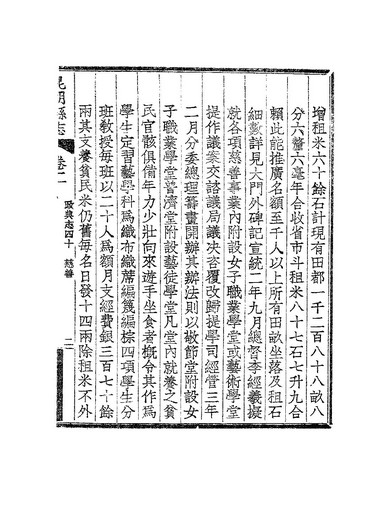 增租米六十餘石計現有田都一千二百八十八畝八
分六釐六毫年合收省市斗租米八十七石七升九合
賴此能推廣名額至千人以上所有田畝坐落及租石
細數詳見大門外碑記宣統二年九月總督李經羲擬
就各項慈善事業內附設女子職業學堂或藝術學堂
提作議案交諮議局議決咨覆改歸提學司經管三年
二月分委總理籌畫開辦其辦法則以敬節堂附設女
子職業學堂普濟堂附設藝徒學堂凡堂內就養之貧
民官骸俱備年力少壯向來遊手坐食者槪令其作為
學生定習藝學科為織布織蓆編篾編棕四項學生分
班敎授每班以二十人為額月支經費銀三百七十餘
兩其文養貧民米仍舊每名日發十四兩除租米不外
昆明縣志 卷二 政典志四十 慈善 二